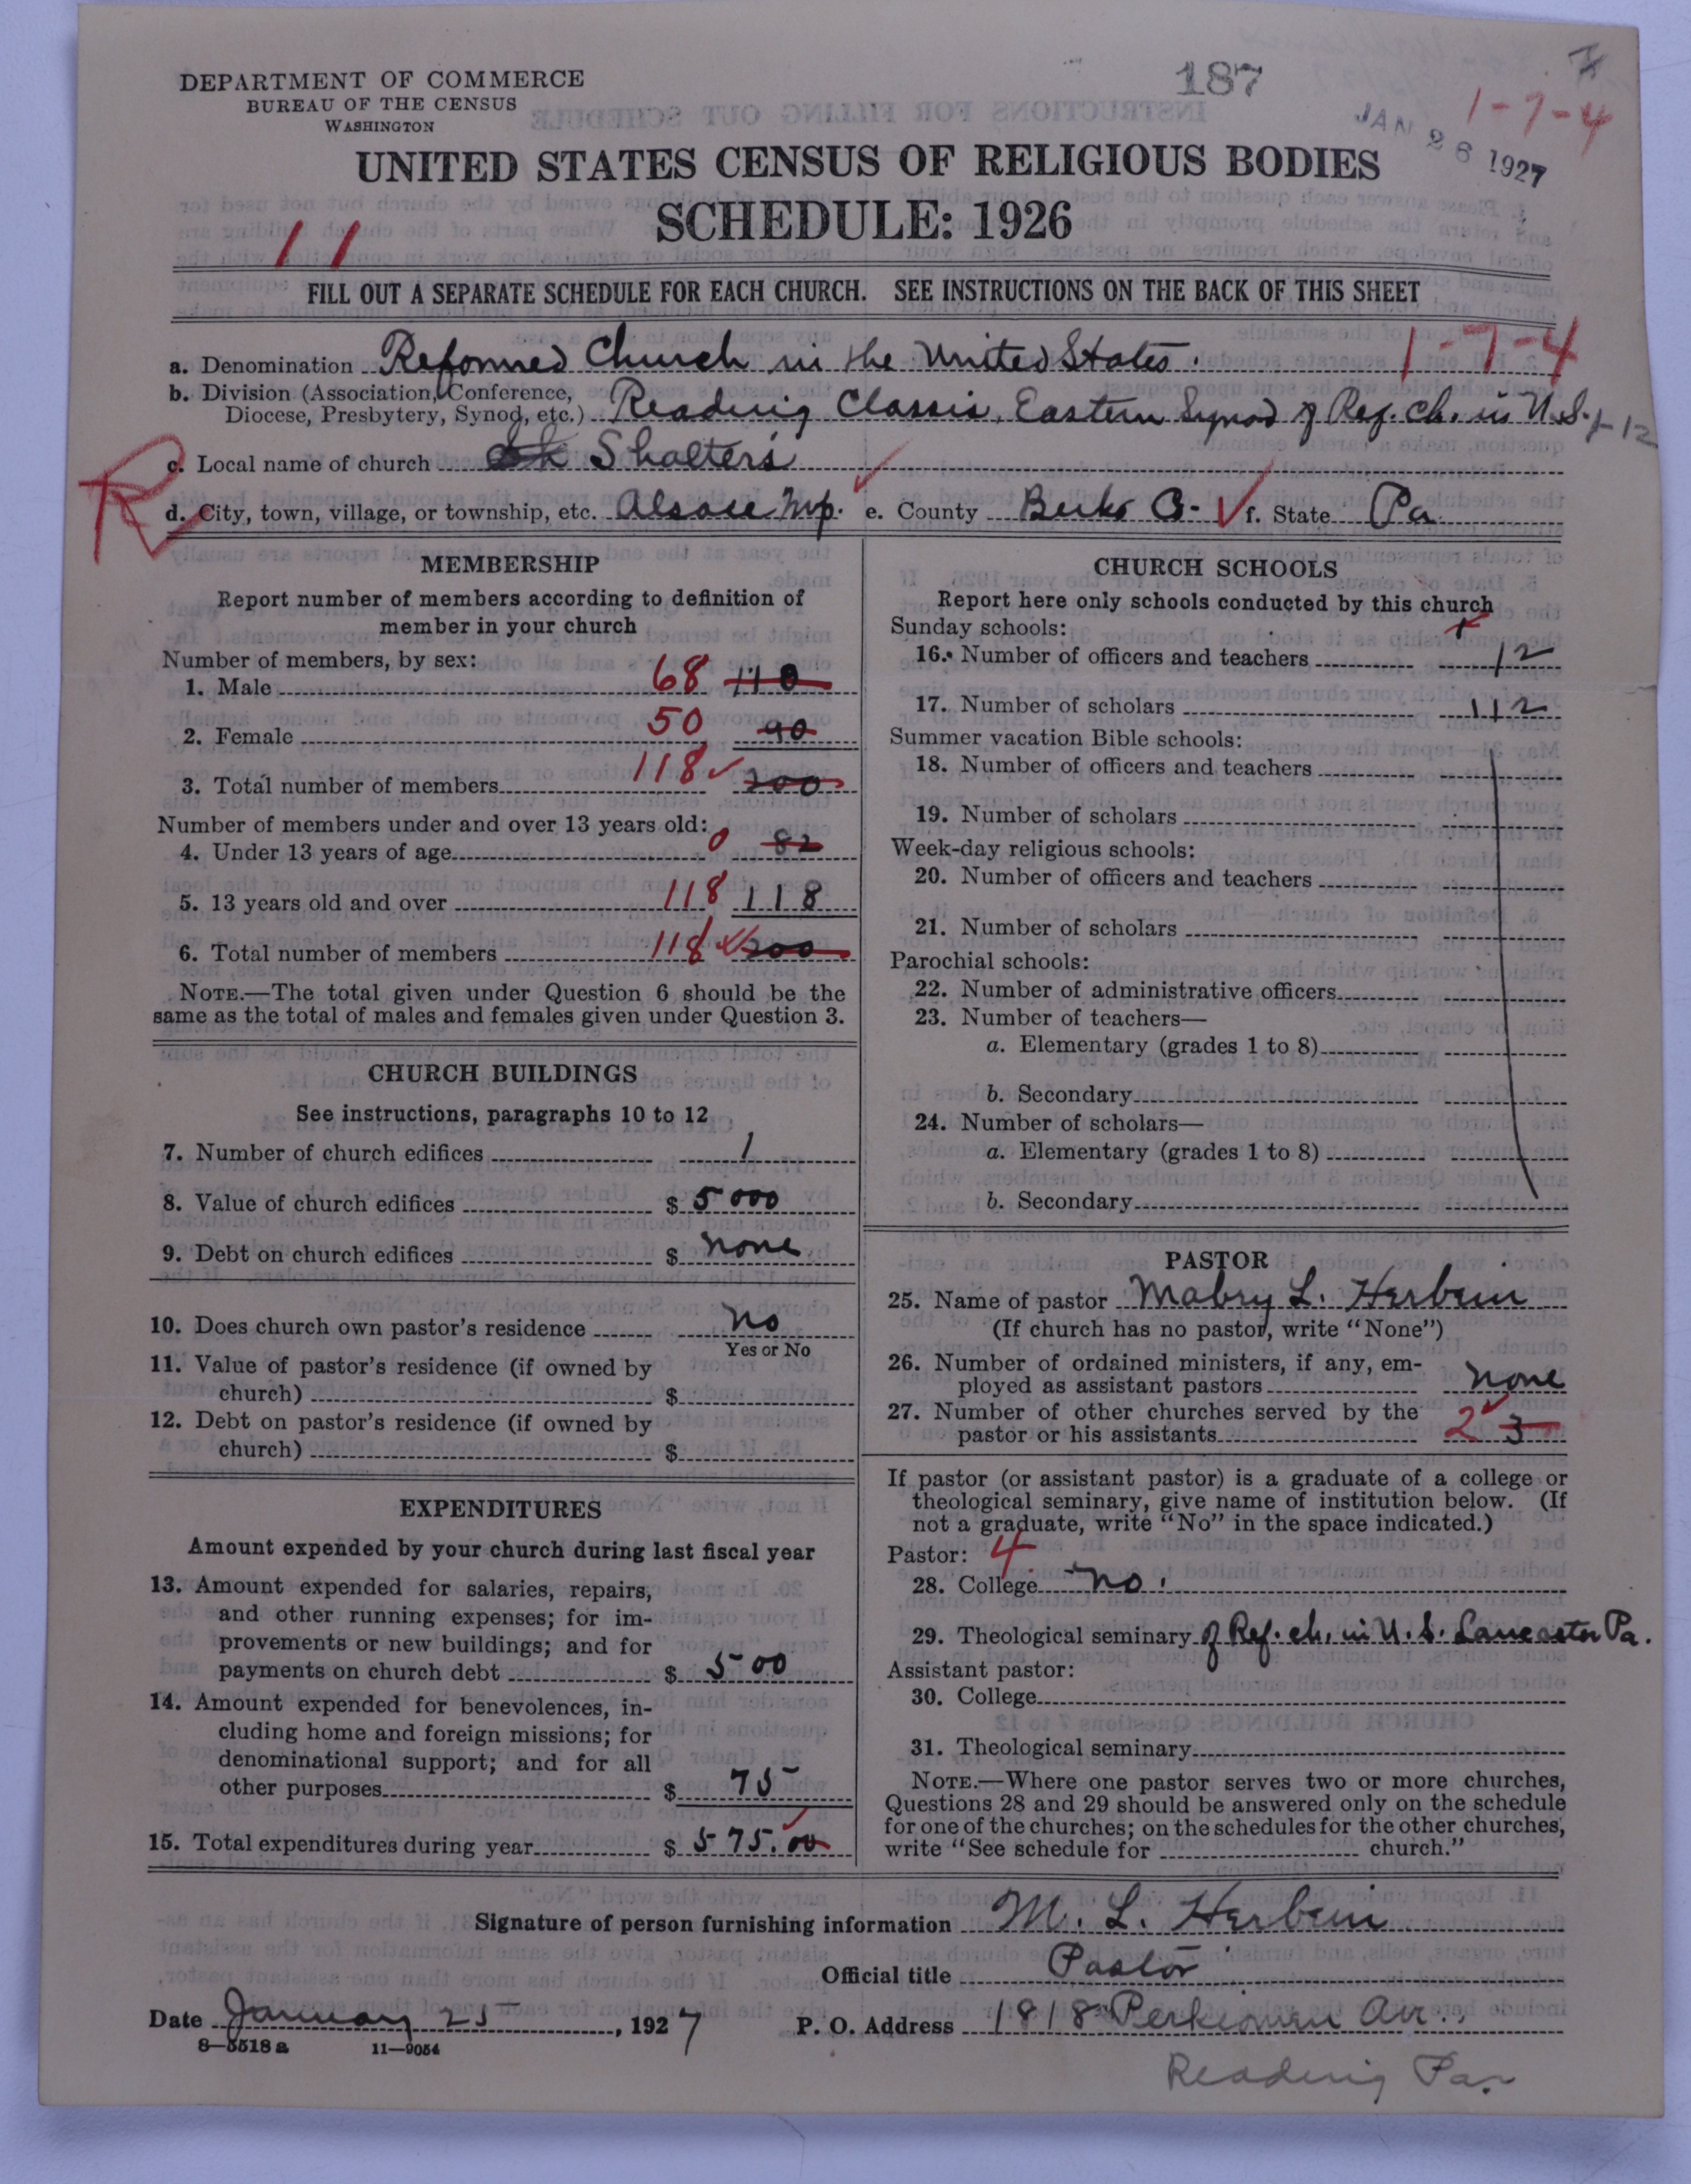 DEPARTMENT OF COMMERCE
BUREAU OF THE CENSUS
WASHINGTON
187
1-7-4
JAN 26 1927
UNITED STATES CENSUS OF RELIGIOUS BODIES
SCHEDULE: 1926
11
FILL OUT A SEPARATE SCHEDULE FOR EACH CHURCH. SEE INSTRUCTIONS ON THE BACK OF THIS SHEET
a. Denomination Reformed Church in the United States. 1-7-4
b. Division (Association, Conference,
Diocese, Presbytery, Synod, etc.) Reading Classis, Eastern Synod of Ref. Ch. in U.S.
R
c. Local name of church Shalters
d. City, town, village, or township, etc. Alsace Twp. e. County Berks Co. f. State Pa
MEMBERSHIP
Report number of members according to definition of
member in your church
Number of members, by sex:
1. Male 68 110
2. Female 50 90
3. Total number of members 118 200
Number of members under and over 13 years old:
4. Under 13 years of age 0 82
5. 13 years old and over 118 118
6. Total number of members 118 200
NOTE.—The total given under Question 6 should be the
same as the total of males and females given under Question 3.
CHURCH BUILDINGS
See instructions, paragraphs 10 to 12
7. Number of church edifices 1
8. Value of church edifices $ 5000
9. Debt on church edifices $ none
10. Does church own pastor's residence No
Yes or No
11. Value of pastor's residence (if owned by
church) $
12. Debt on pastor's residence (if owned by
church) $
EXPENDITURES
Amount expended by your church during last fiscal year
13. Amount expended for salaries, repairs,
and other running expenses; for im-
provements or new buildings; and for
payments on church debt $ 500
14. Amount expended for benevolences, in-
cluding home and foreign missions; for
denominational support; and for all
other purposes $ 75
15. Total expenditures during year $ 575.00
CHURCH SCHOOLS
Report here only schools conducted by this church
Sunday schools:
16. Number of officers and teachers 12
17. Number of scholars 112
Summer vacation Bible schools:
18. Number of officers and teachers
19. Number of scholars
Week-day religious schools:
20. Number of officers and teachers
21. Number of scholars
Parochial schools:
22. Number of administrative officers
23. Number of teachers—
a. Elementary (grades 1 to 8)
b. Secondary
24. Number of scholars—
a. Elementary (grades 1 to 8)
b. Secondary
PASTOR
25. Name of pastor Mabry L. Herbein
(If church has no pastor, write "None")
26. Number of ordained ministers, if any, em-
ployed as assistant pastors none
27. Number of other churches served by the
pastor or his assistants 2 3
If pastor (or assistant pastor) is a graduate of a college or
theological seminary, give name of institution below. (If
not a graduate, write "No" in the space indicated.)
Pastor: 4
28. College no.
29. Theological seminary of Ref. ch. in U.S. Lancaster Pa.
Assistant pastor:
30. College
31. Theological seminary
NOTE.—Where one pastor serves two or more churches,
Questions 28 and 29 should be answered only on the schedule
for one of the churches; on the schedules for the other churches,
write "See schedule for church."
Signature of person furnishing information M. L. Herbein
Official title Pastor
Date January 25, 1927 P. O. Address 1818 Perkiomen Ave.,
8-5518a 11-9054
Reading Pa.